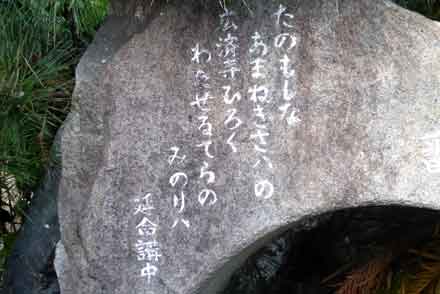 たのもしな
あまねきさハの
広済寺ひろく
わたせるてらの
みのりハ
延命講中